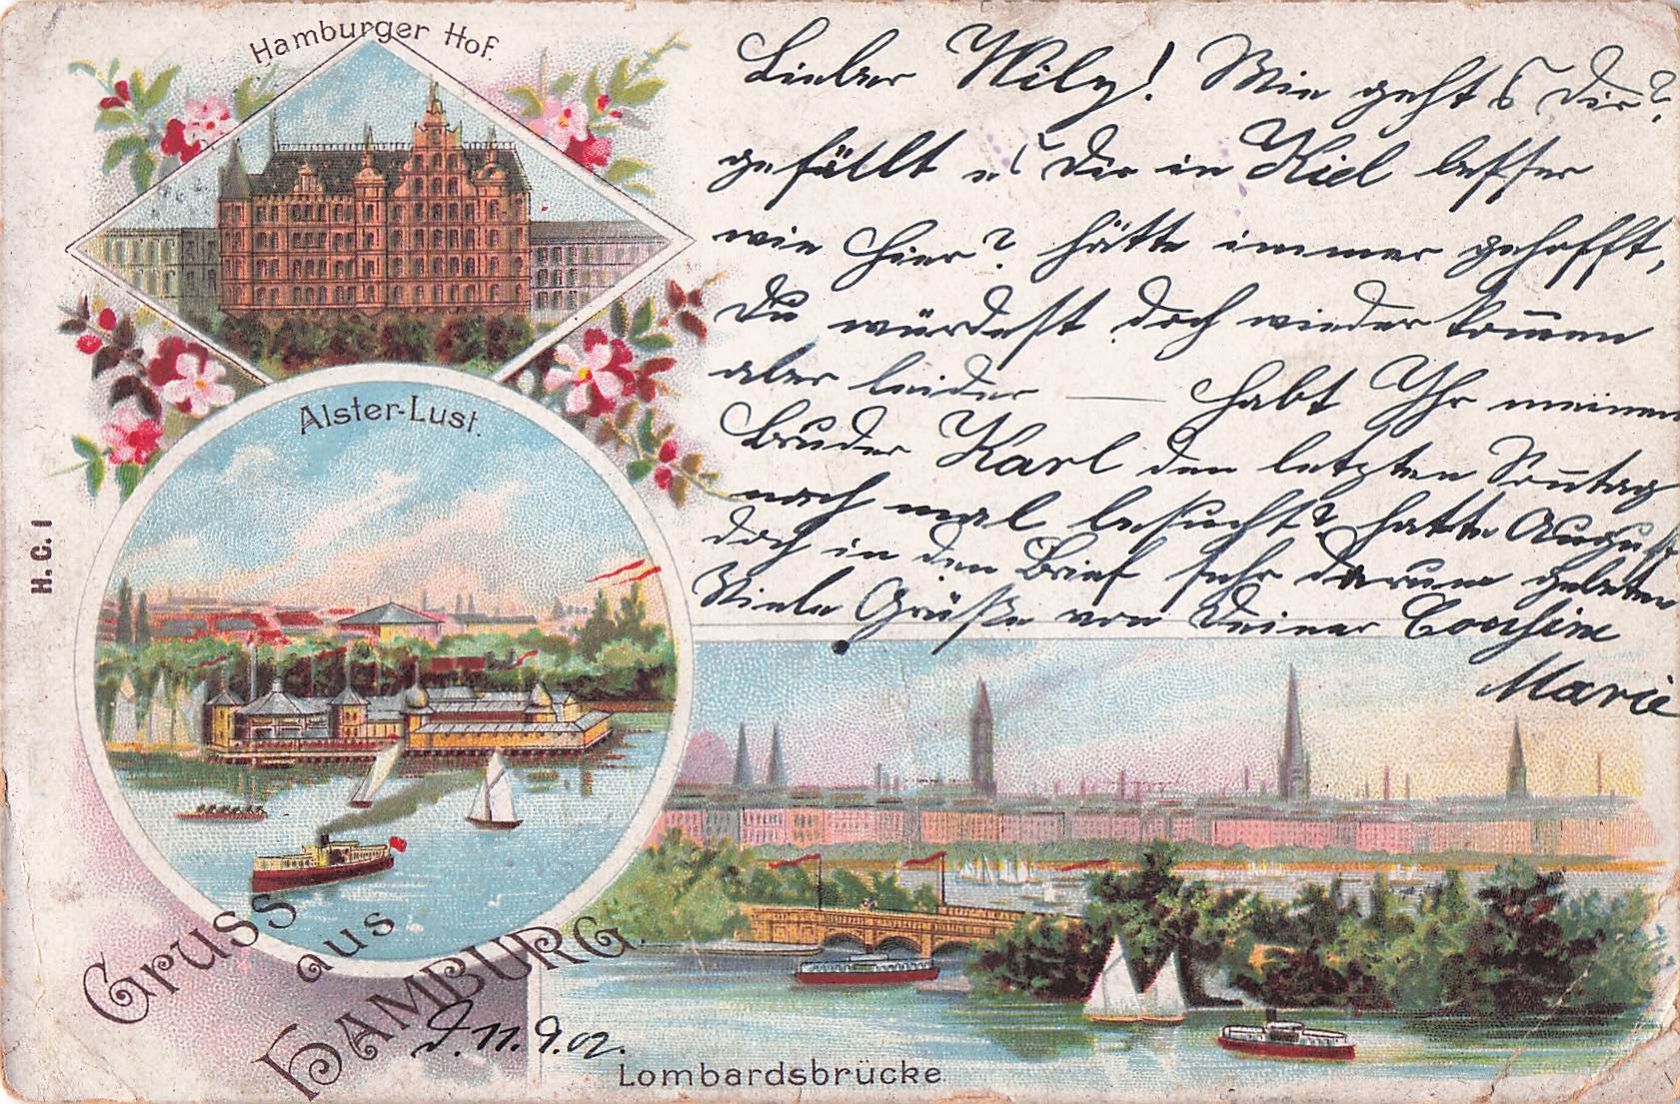 Hamburger Hof.
Lieber Wily! Wie geht's Dir?
gefällt es Dir in Kiel besser
wie hier? hätte immer gehofft,
Du würdest doch wieder kom̅en
aber leider — Habt Ihr meinen
Bruder Karl den letzten Son̅tag
noch mal besucht? hatte August
doch in den Brief sehr darum gebeten
Viele Grüße von Deiner Cousine
Marie
Alster-Lust.
H.C.I
Gruss
aus
HAMBURG.
d. 11.9.02.
Lombardsbrücke